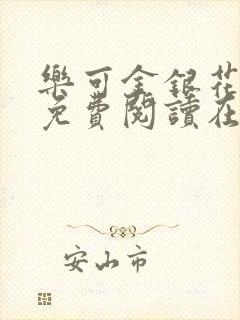 樂可金銀花
免費閱讀在
安山市